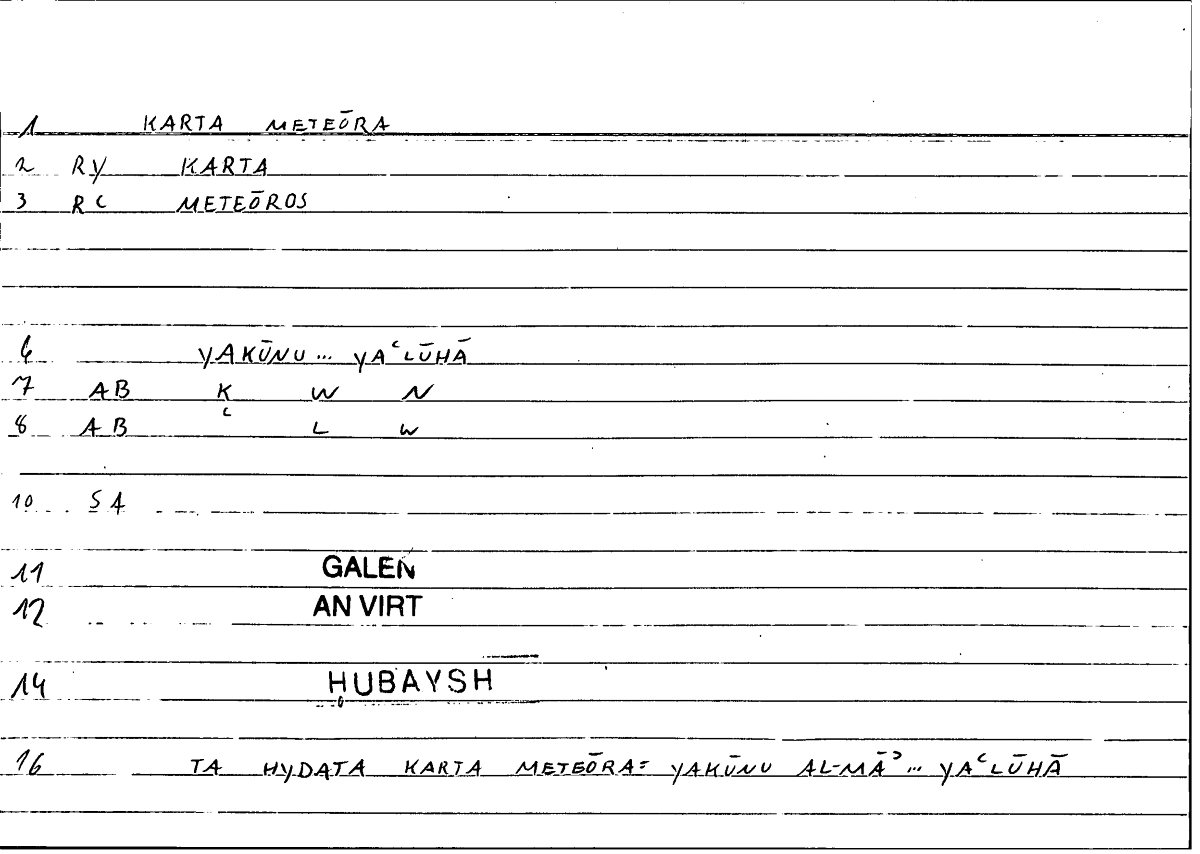 1 KARTA METEŌRA
2 RY KARTA
3 RC METEŌROS
6 YAKŪNU... YAʿLŪHĀ
7 AB K W N
8 AB ʿ L W
10 SA
11 GALEN
12 AN VIRT
14 ḤUBAYSH
16 TA HYDATA KARTA METEŌRA= YAKŪNU AL-MĀʾ... YAʿLŪHĀ